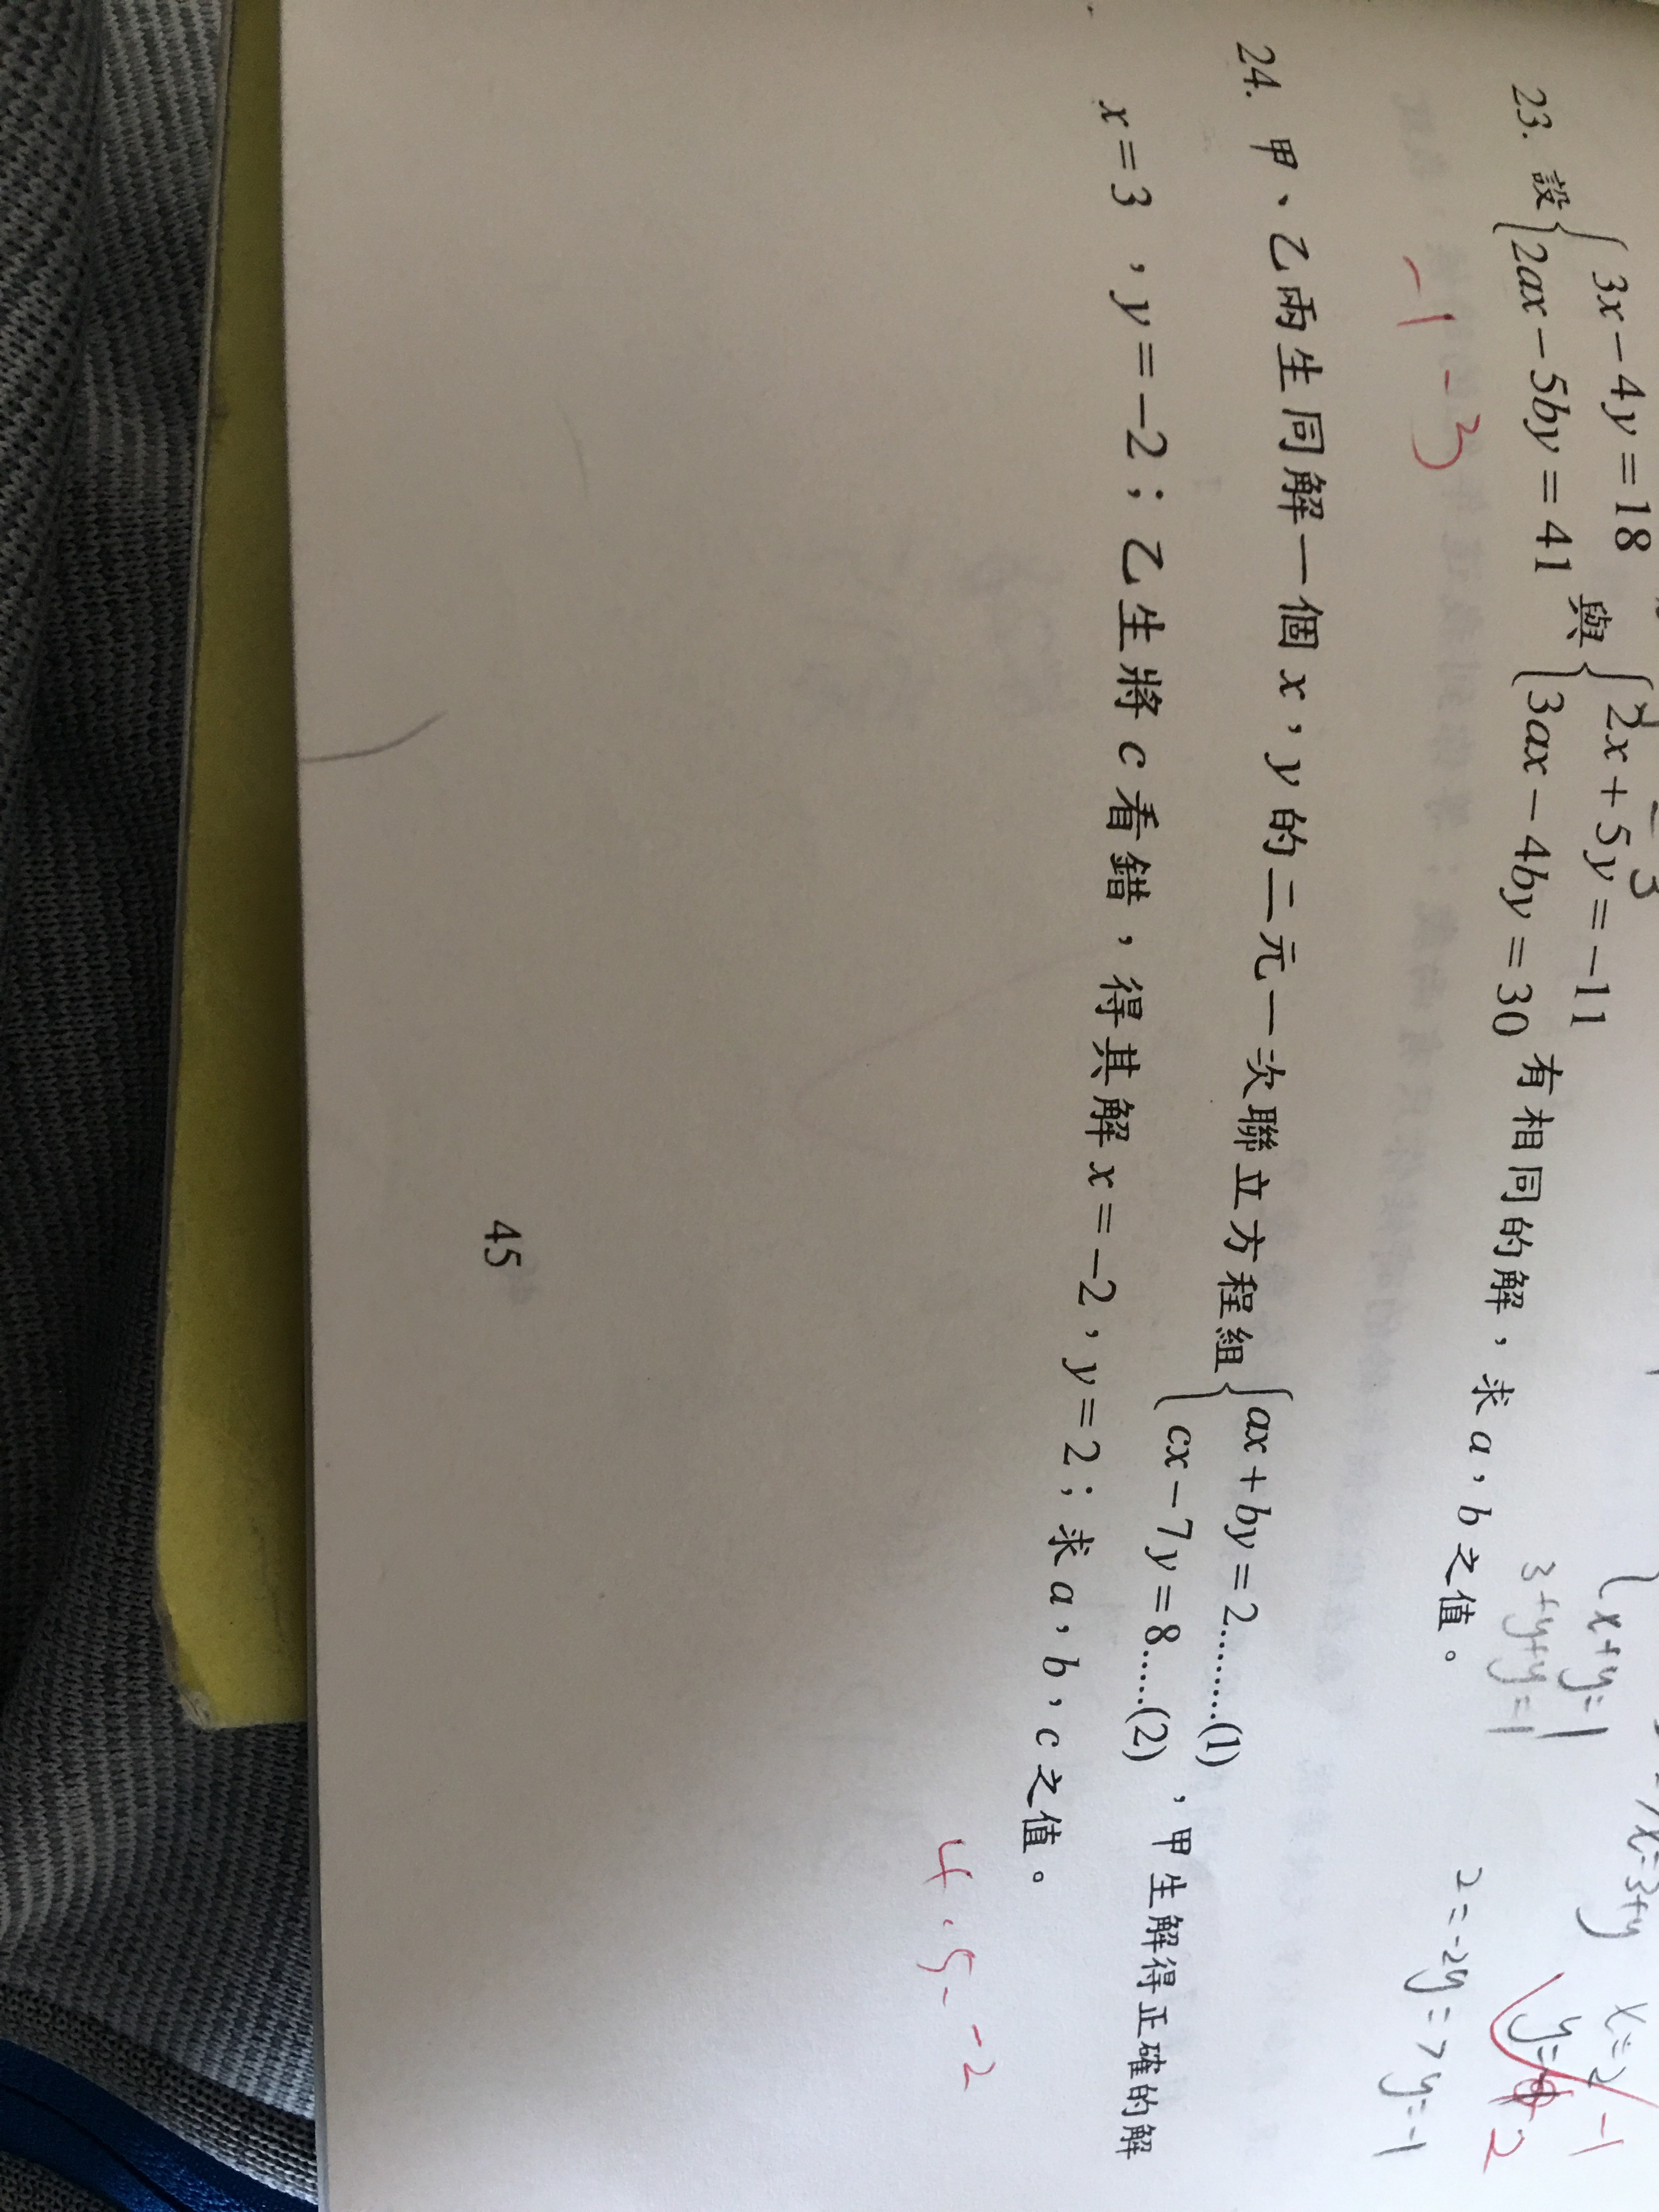 23. 設{3x－4y＝18 與{2x＋5y＝－11 有相同的解，求a，b之值。
{2ax－5by＝41 {3ax－4by＝30
－1 －3
x+y=1
3+y+y=1
x=3+y
2=-2y=7 y=-1
24. 甲、乙兩生同解一個x，y的二元一次聯立方程組{ax＋by＝2………(1) ，甲生解得正確的解
{cx－7y＝8……(2)
x＝3，y＝－2；乙生將c看錯，得其解x＝－2，y＝2；求a，b，c之值。
4 . 5 - -2
45